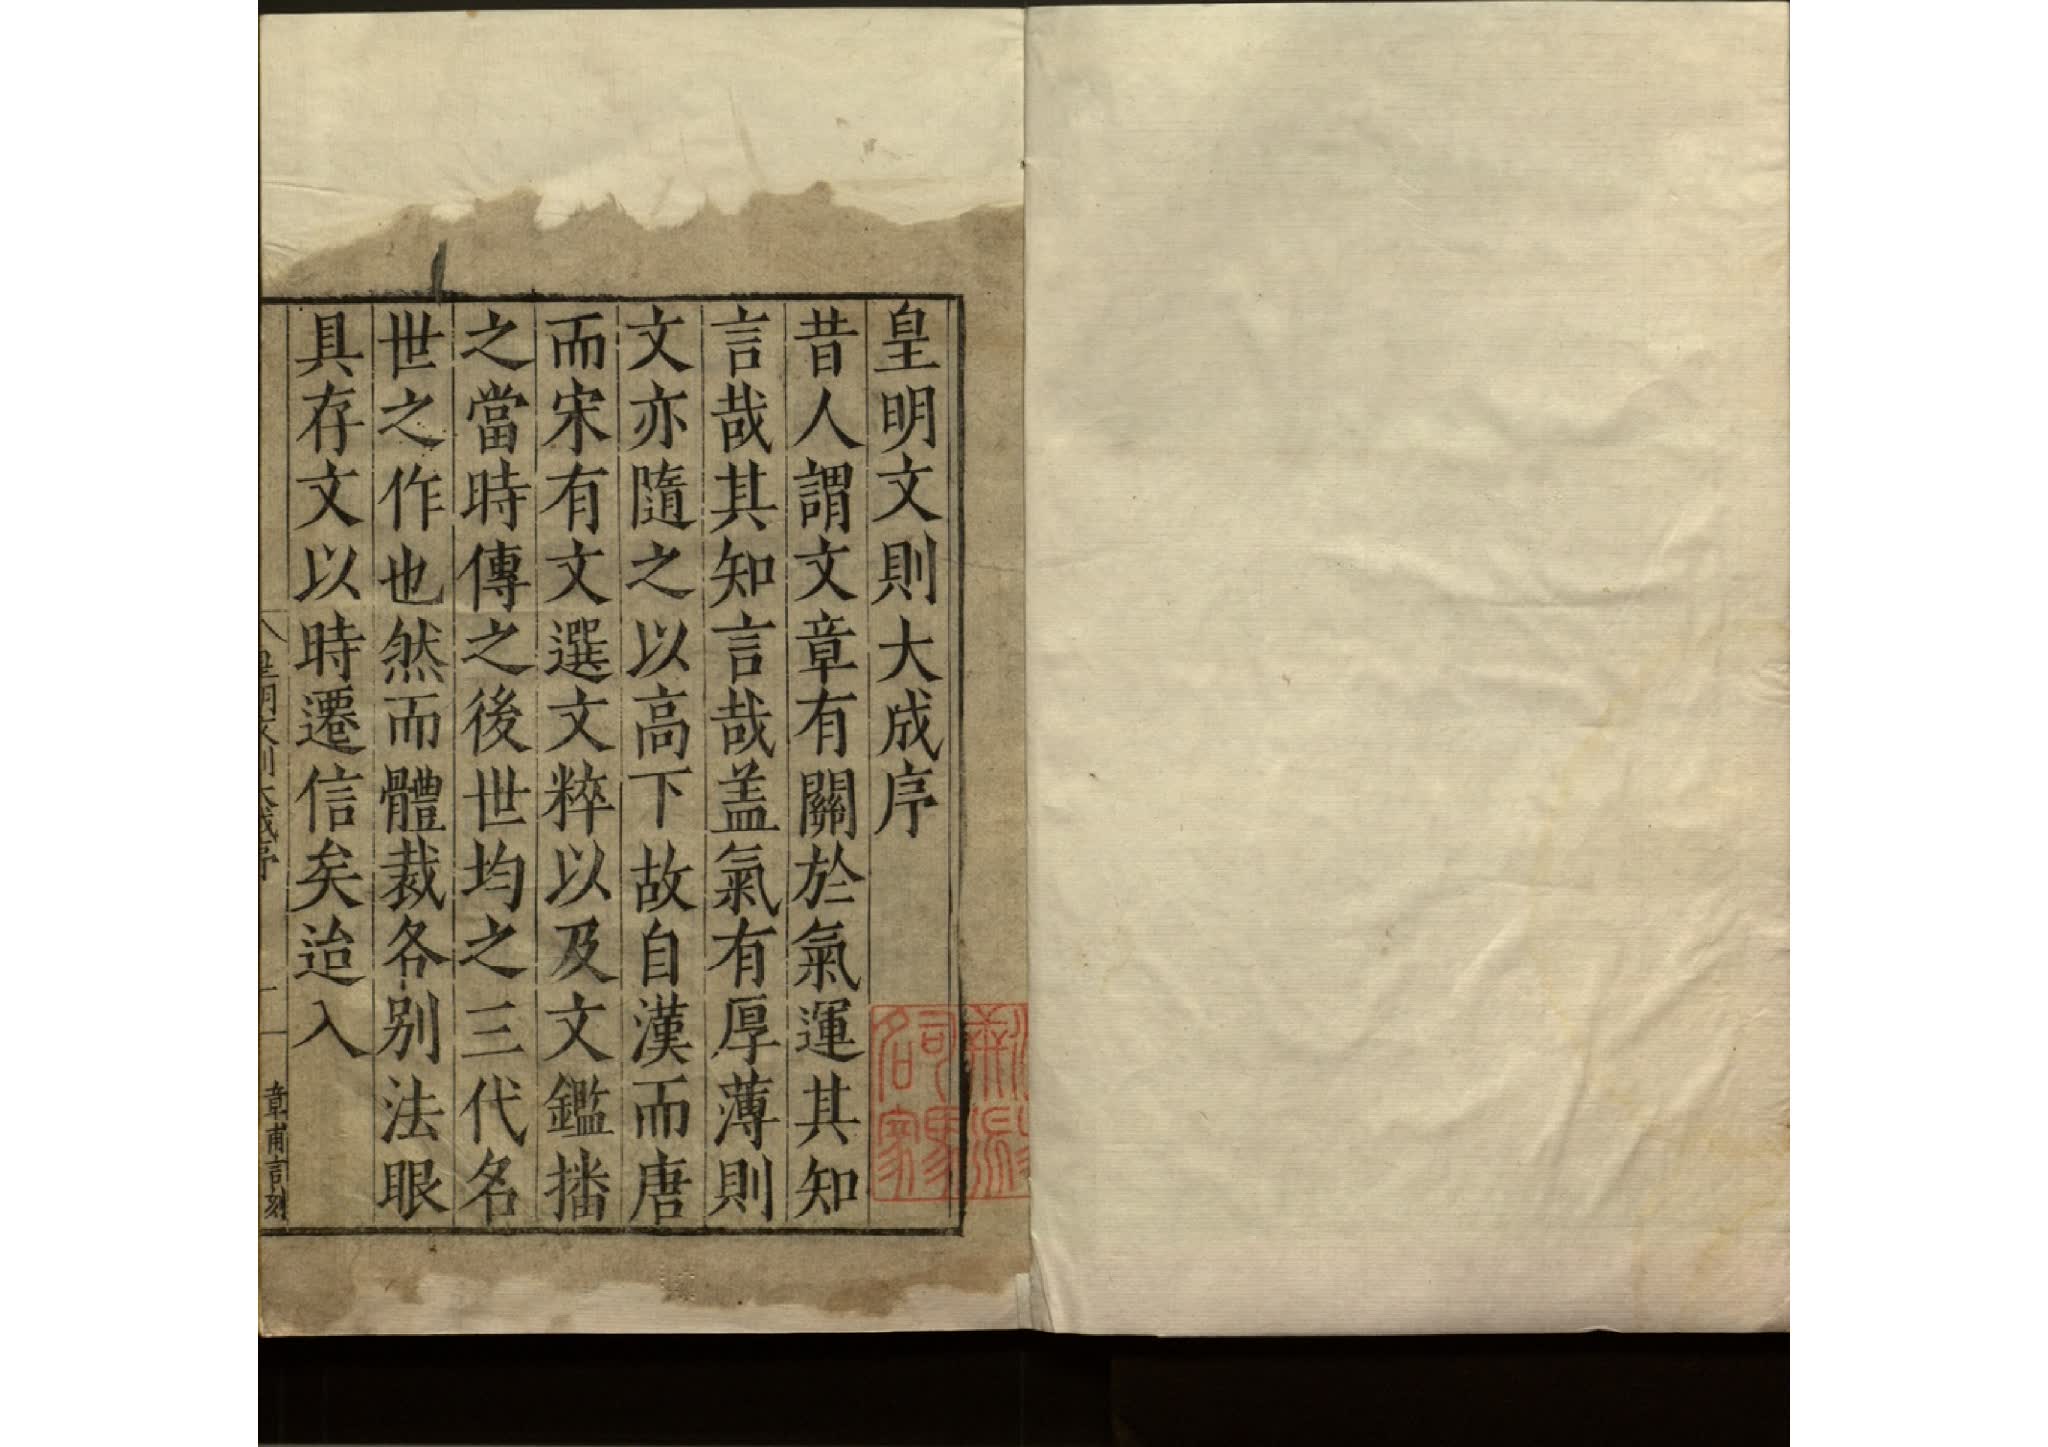 皇明文則大成序
昔人謂文章有關於氣運其知
言哉其知言哉盖氣有厚薄則
文亦隨之以高下故自漢而唐
而宋有文選文粹以及文鑑播
之當時傳之後世均之三代名
世之作也然而體裁各別法眼
具存文以時遷信矣迨入
皇明文則大成序
一
章甫言刻
司馬
名家